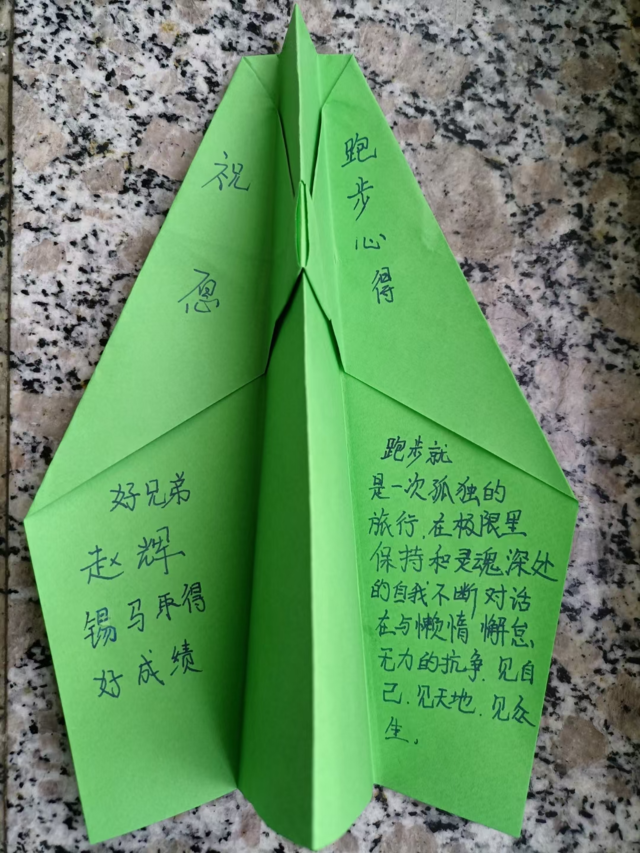 祝愿
好兄弟
赵辉
锡马取得
好成绩
跑步心得
跑步就
是一次孤独的
旅行,在极限里
保持和灵魂深处
的自我不断对话
在与懒惰 懈怠、
无力的抗争.见自
己.见天地.见众
生.